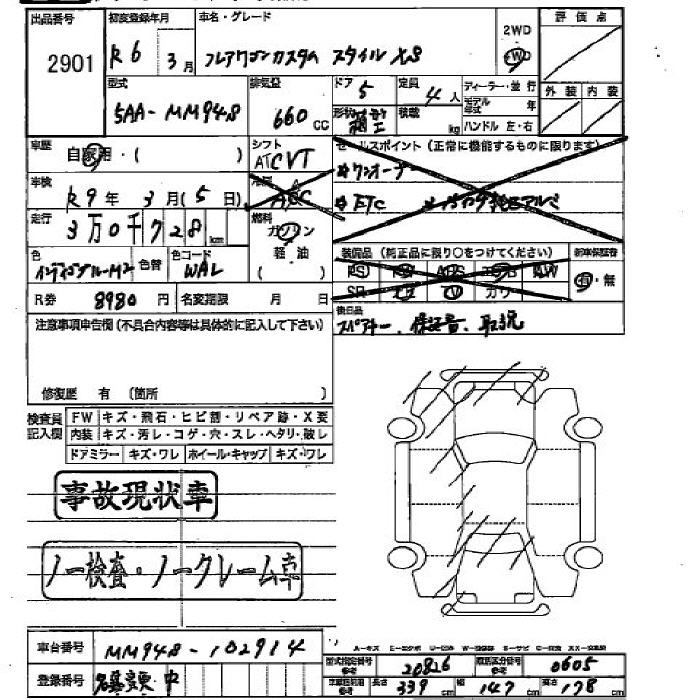 出品番号 初度登録年月 車名・グレード 2WD 評価点
2901 R6 3月 フレアワゴンカスタム スタイル XS 4WD
型式 排気量 ドア 定員 ディーラー・並行 外装 内装
5AA-MM94S 660 CC 5 4人 モデル年式 年
形状 箱型 積載 kg ハンドル 左・右
車歴 シフト セールスポイント（正常に機能するものに限ります）
自家用・（ ） ATCVT ☆ワンオーナー
車検 冷房
R9年 3月（5日） AAC ☆ETC
走行 燃料
3万0千728km ガソリン
軽油
（ ）
色 色替 色コード 装備品（純正品に限り〇をつけてください） 新車保証書
WAL PS PW ABS AW 有・無
SR ナビ TV カワ
R券 8980円 名変期限 月 日 後日品
スペアキー、保証書、取説
注意事項申告欄（不具合内容等は具体的に記入して下さい）
修復歴 有（箇所 ）
検査員記入欄 FW キズ・飛石・ヒビ割・リペア跡・X要
内装 キズ・汚レ・コゲ・穴・スレ・ヘタリ・破レ
ドアミラー キズ・ワレ ホイール・キャップ キズ・ワレ
事故現状車
ノー検査・ノークレーム車
車台番号 MM94S-102914
型式指定番号 20826 類別区分番号 0605
登録番号 名義変更中
長さ 339cm 幅 147cm 高さ 178cm